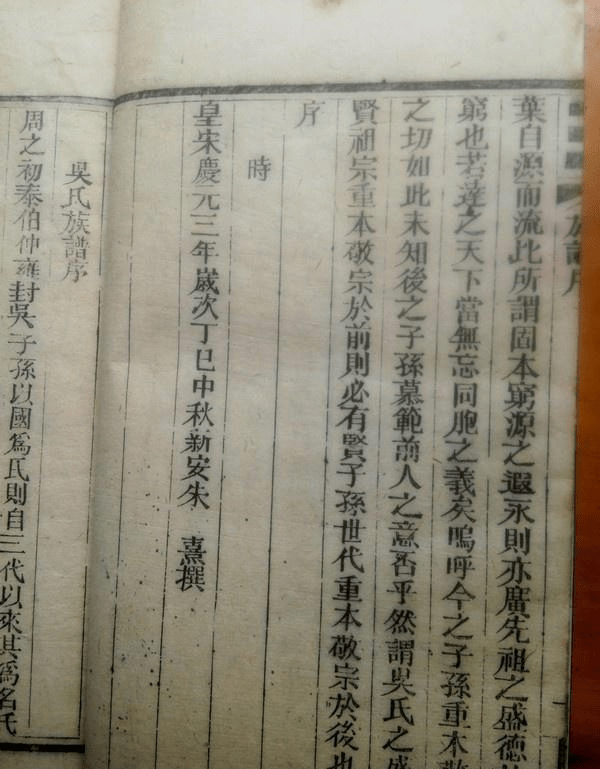 族譜序
葉自源而流此所謂固本窮源之遐永則亦廣先祖之盛德
窮也若達之天下當無忘同胞之義矣嗚呼今之子孫重本敬
之切如此未知後之子孫慕範前人之意否乎然謂吳氏之盛
賢祖宗重本敬宗於前則必有賢子孫世代重本敬宗於後也
序
時
皇宋慶元三年歲次丁巳中秋新安朱 熹撰
吳氏族譜序
周之初泰伯仲雍封吳子孫以國爲氏則自三代以來其爲名氏